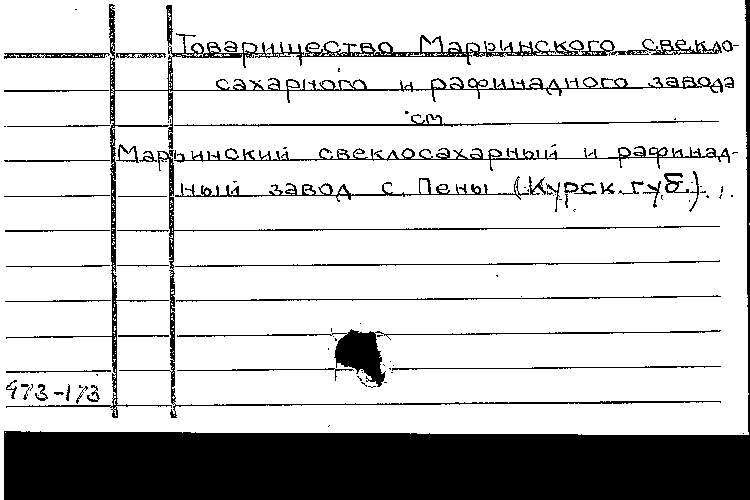 Товарищество Марьинского свекло-
сахарного и рафинадного завода
см
Марьинский свеклосахарный и рафинад-
ный завод с. Пены (Курск. губ.).
473-173